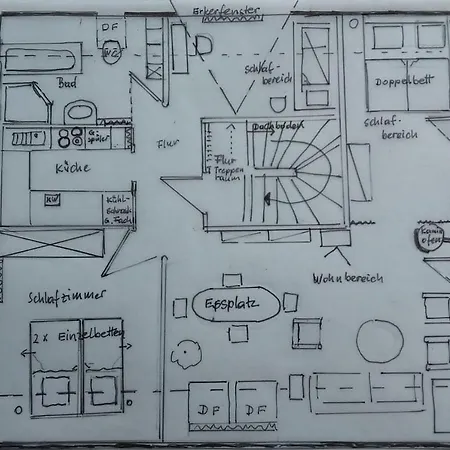 Erkerfenster
DF
WC
Bad
Schlaf-
bereich
Doppelbett
Schlaf-
bereich
G.
spüler
Flur
Dachboden
Flur
Treppen
raum
Küche
KW
Kühl-
Schrank
G. Fach
Kamin
ofen
Wohnbereich
Schlafzimmer
Eßplatz
2 x Einzelbetten
DF
DF